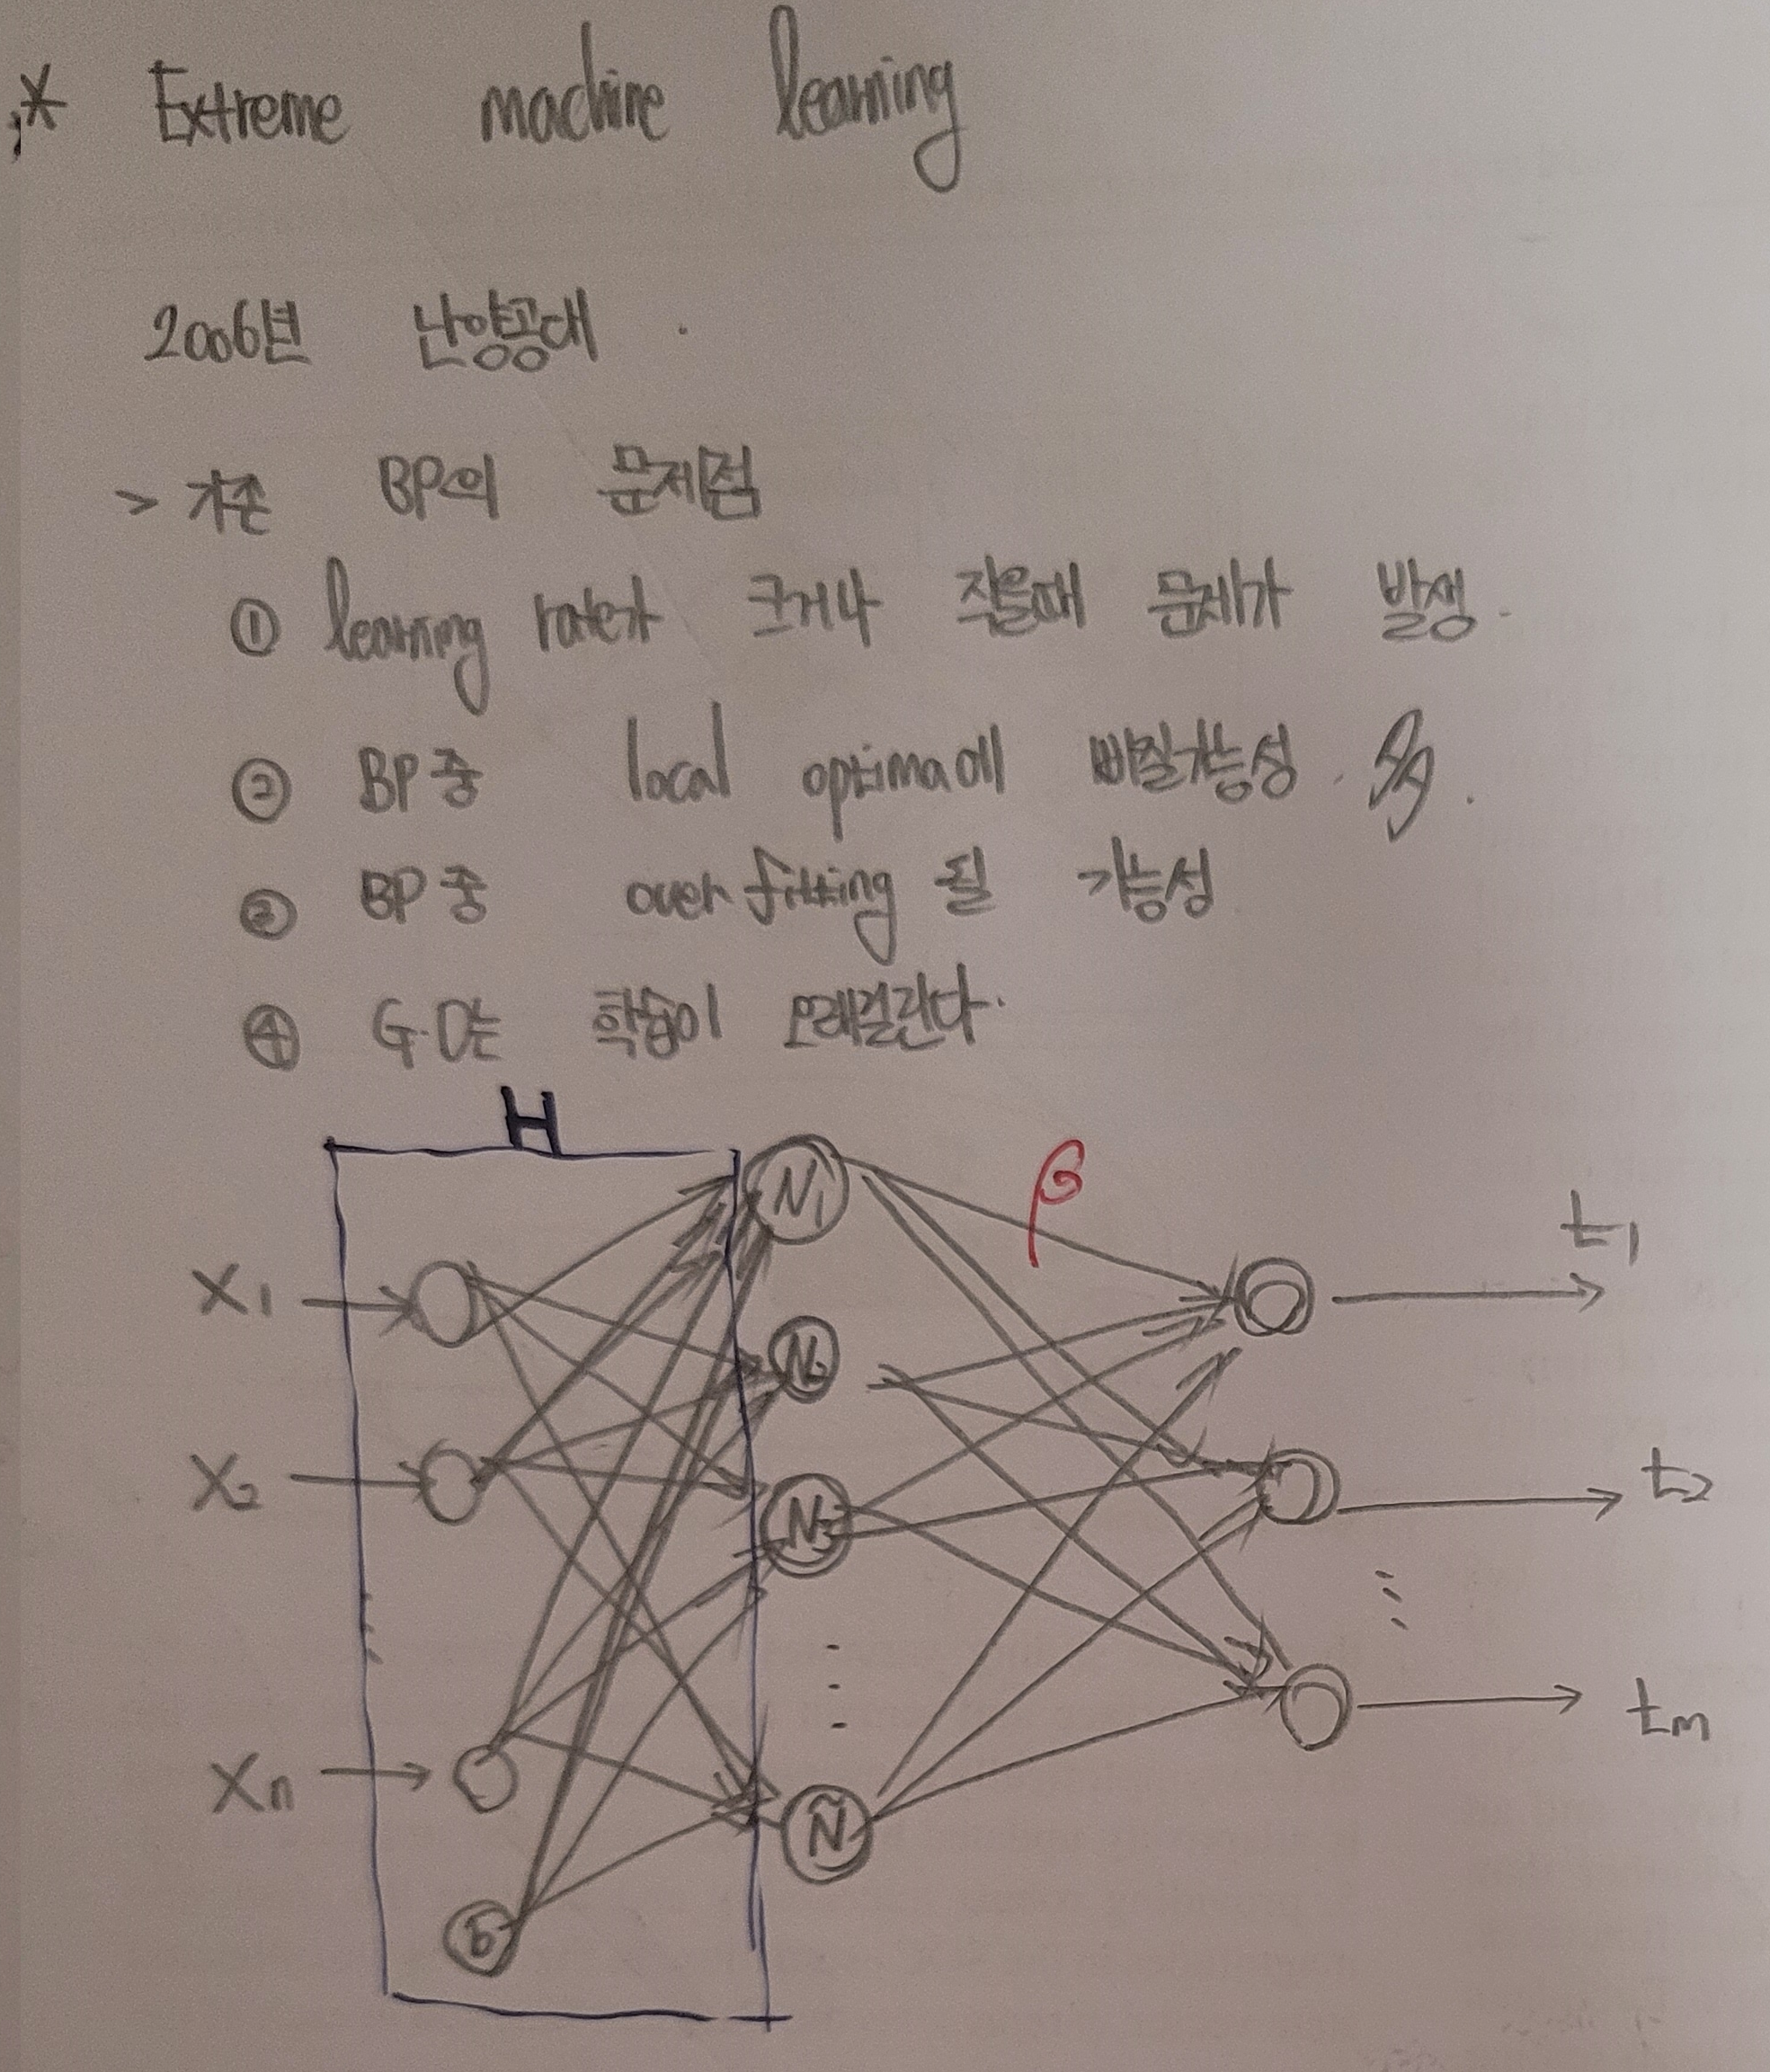 * Extreme machine learning
2006년 난양공대.
> 기존 BP의 문제점
① learning rate가 크거나 작을때 문제가 발생.
② BP중 local optima에 빠질가능성 多.
③ BP중 overfitting 될 가능성
④ G.D는 학습이 오래걸린다.
H
N₁
β
t₁
x₁
N₂
x₂
t₂
N₃
⋮
⋮
tm
xn
Ñ
b